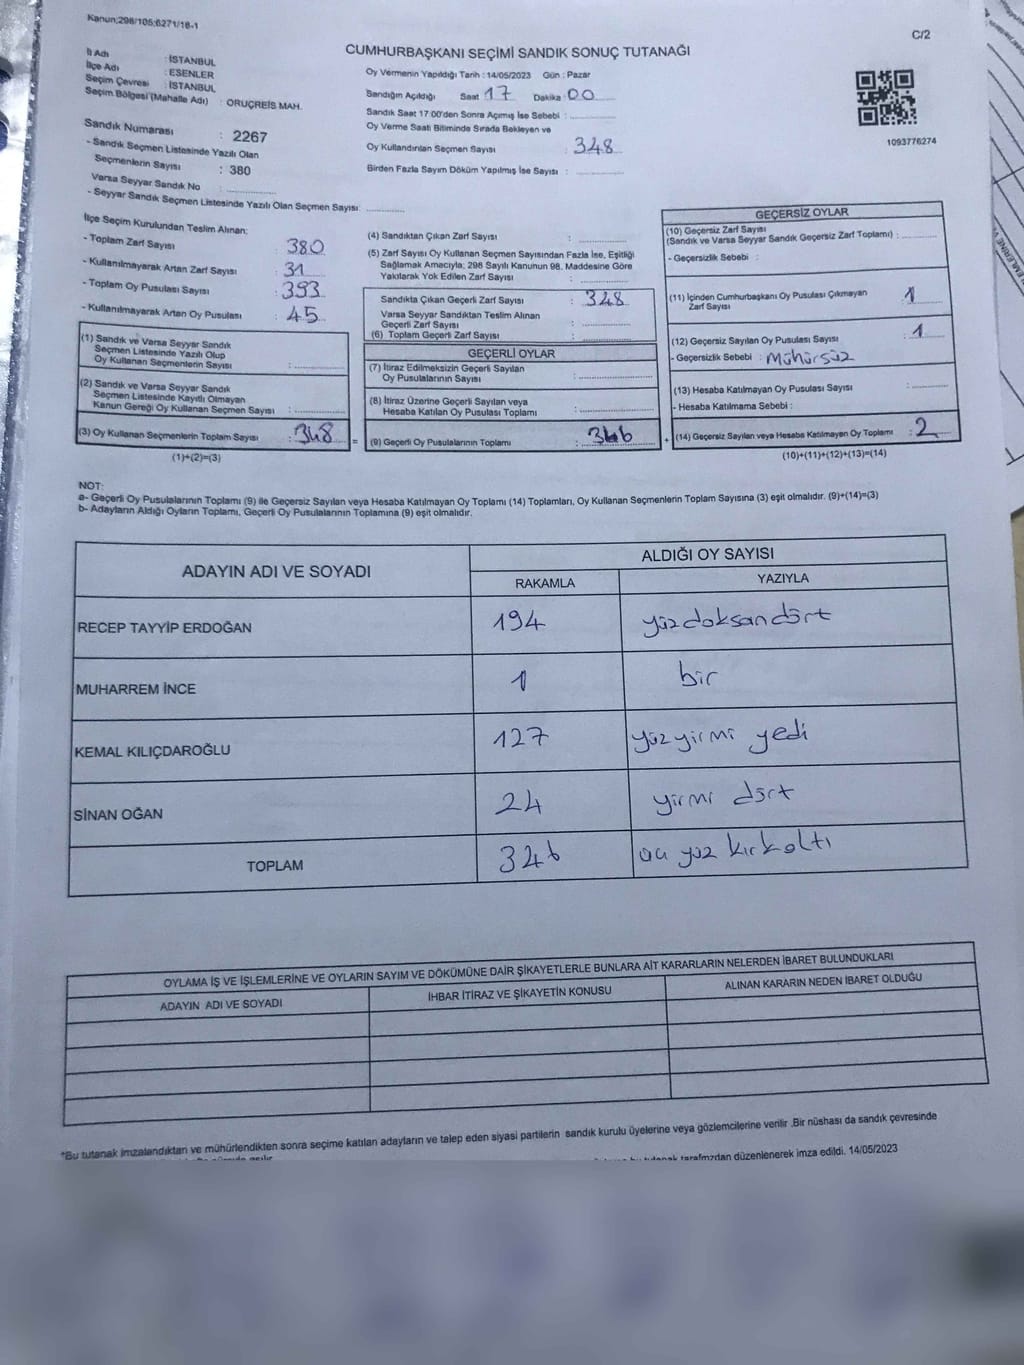 Kanun;298/105;6271/18-1
C/2
CUMHURBAŞKANI SEÇİMİ SANDIK SONUÇ TUTANAĞI
İl Adı : İSTANBUL
İlçe Adı : ESENLER
Seçim Çevresi : İSTANBUL
Seçim Bölgesi (Mahalle Adı) : ORUÇREİS MAH.
Oy Vermenin Yapıldığı Tarih : 14/05/2023 Gün : Pazar
Sandığın Açıldığı Saat 17 Dakika 00
Sandık Saat 17:00'den Sonra Açımış İse Sebebi :
Oy Verme Saati Bitiminde Sırada Bekleyen ve
Oy Kullandırılan Seçmen Sayısı : 348
Birden Fazla Sayım Döküm Yapılmış İse Sayısı :
1093776274
Sandık Numarası : 2267
- Sandık Seçmen Listesinde Yazılı Olan
Seçmenlerin Sayısı : 380
Varsa Seyyar Sandık No :
- Seyyar Sandık Seçmen Listesinde Yazılı Olan Seçmen Sayısı:
İlçe Seçim Kurulundan Teslim Alınan:
- Toplam Zarf Sayısı : 380
- Kullanılmayarak Artan Zarf Sayısı : 31
- Toplam Oy Pusulası Sayısı : 393
- Kullanılmayarak Artan Oy Pusulası : 45
(1) Sandık ve Varsa Seyyar Sandık
Seçmen Listesinde Yazılı Olup
Oy Kullanan Seçmenlerin Sayısı :
(2) Sandık ve Varsa Seyyar Sandık
Seçmen Listesinde Kayıtlı Olmayan
Kanun Gereği Oy Kullanan Seçmen Sayısı :
(3) Oy Kullanan Seçmenlerin Toplam Sayısı : 348
(1)+(2)=(3)
(4) Sandıktan Çıkan Zarf Sayısı :
(5) Zarf Sayısı Oy Kullanan Seçmen Sayısından Fazla İse, Eşitliği
Sağlamak Amacıyla; 298 Sayılı Kanunun 98. Maddesine Göre
Yakılarak Yok Edilen Zarf Sayısı :
Sandıkta Çıkan Geçerli Zarf Sayısı : 348
Varsa Seyyar Sandıktan Teslim Alınan
Geçerli Zarf Sayısı :
(6) Toplam Geçerli Zarf Sayısı :
GEÇERLİ OYLAR
(7) İtiraz Edilmeksizin Geçerli Sayılan
Oy Pusulalarının Sayısı :
(8) İtiraz Üzerine Geçerli Sayılan veya
Hesaba Katılan Oy Pusulası Toplamı :
= (9) Geçerli Oy Pusulalarının Toplamı : 346
GEÇERSİZ OYLAR
(10) Geçersiz Zarf Sayısı
(Sandık ve Varsa Seyyar Sandık Geçersiz Zarf Toplamı) :
- Geçersizlik Sebebi :
(11) İçinden Cumhurbaşkanı Oy Pusulası Çıkmayan
Zarf Sayısı : 1
(12) Geçersiz Sayılan Oy Pusulası Sayısı : 1
- Geçersizlik Sebebi : Mühürsüz
(13) Hesaba Katılmayan Oy Pusulası Sayısı :
- Hesaba Katılmama Sebebi :
+ (14) Geçersiz Sayılan veya Hesaba Katılmayan Oy Toplamı : 2
(10)+(11)+(12)+(13)=(14)
NOT:
a- Geçerli Oy Pusulalarının Toplamı (9) ile Geçersiz Sayılan veya Hesaba Katılmayan Oy Toplamı (14) Toplamları, Oy Kullanan Seçmenlerin Toplam Sayısına (3) eşit olmalıdır. (9)+(14)=(3)
b- Adayların Aldığı Oyların Toplamı, Geçerli Oy Pusulalarının Toplamına (9) eşit olmalıdır.
ADAYIN ADI VE SOYADI
ALDIĞI OY SAYISI
RAKAMLA YAZIYLA
RECEP TAYYİP ERDOĞAN 194 yüzdoksandört
MUHARREM İNCE 1 bir
KEMAL KILIÇDAROĞLU 127 yüzyirmi yedi
SİNAN OĞAN 24 yirmi dört
TOPLAM 346 üç yüz kırkaltı
OYLAMA İŞ VE İŞLEMLERİNE VE OYLARIN SAYIM VE DÖKÜMÜNE DAİR ŞİKAYETLERLE BUNLARA AİT KARARLARIN NELERDEN İBARET BULUNDUKLARI
ADAYIN ADI VE SOYADI İHBAR İTİRAZ VE ŞİKAYETİN KONUSU ALINAN KARARIN NEDEN İBARET OLDUĞU
*Bu tutanak imzalandıktan ve mühürlendikten sonra seçime katılan adayların ve talep eden siyasi partilerin sandık kurulu üyelerine veya gözlemcilerine verilir .Bir nüshası da sandık çevresinde
bu tutanak tarafmzdan düzenlenerek imza edildi. 14/05/2023